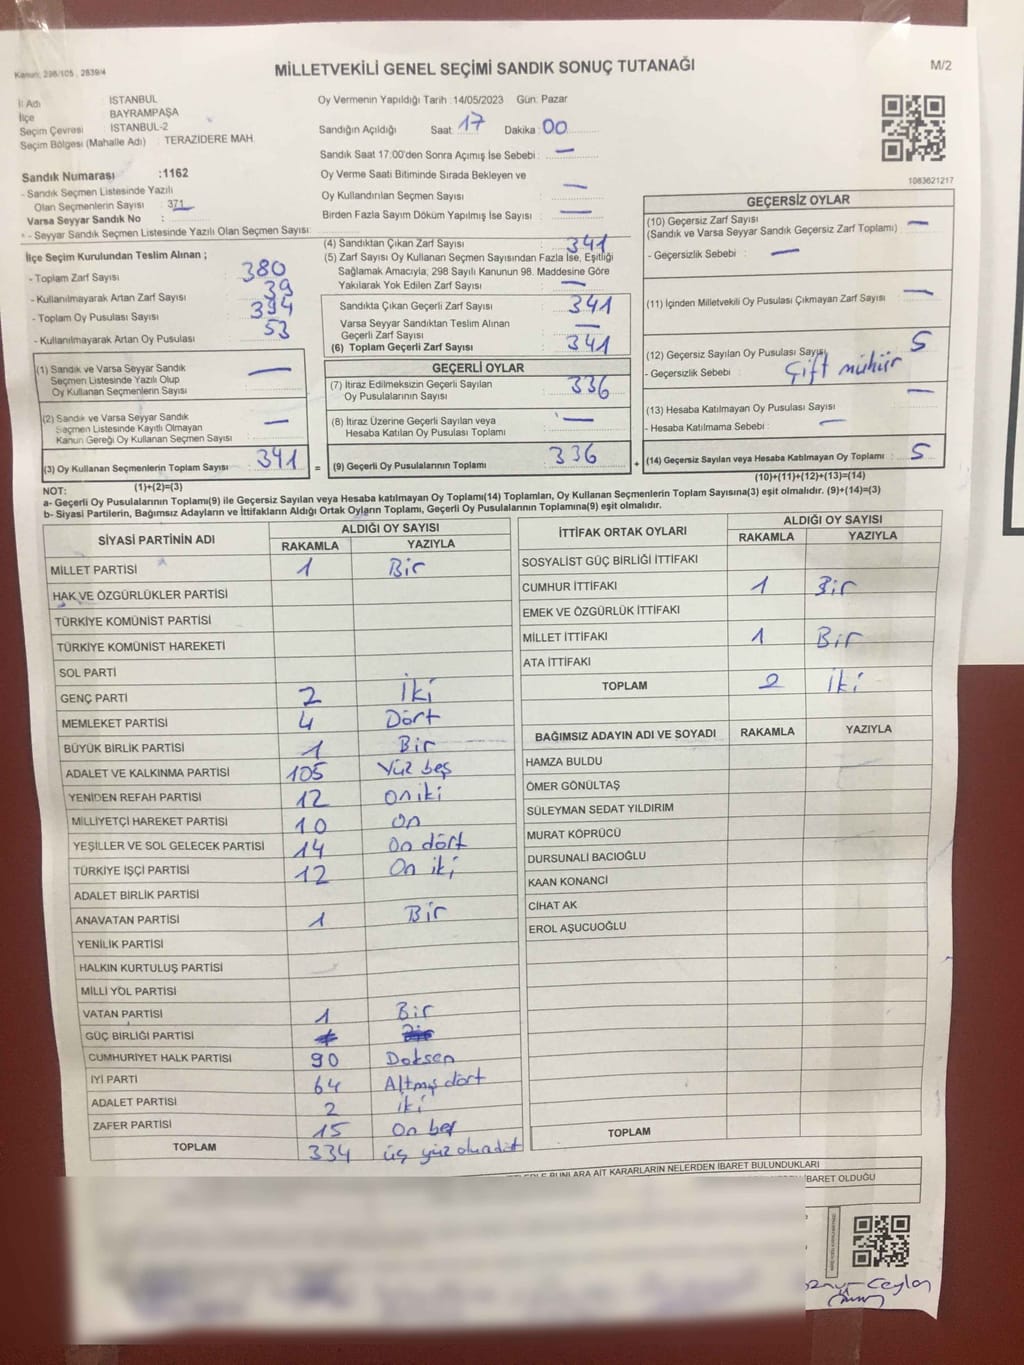 Kanun: 298/105 , 2839/4
MİLLETVEKİLİ GENEL SEÇİMİ SANDIK SONUÇ TUTANAĞI
M/2
İl Adı İSTANBUL
İlçe BAYRAMPAŞA
Seçim Çevresi İSTANBUL-2
Seçim Bölgesi (Mahalle Adı) : TERAZİDERE MAH.
Sandık Numarası :1162
- Sandık Seçmen Listesinde Yazılı
Olan Seçmenlerin Sayısı : 371
Varsa Seyyar Sandık No :
- Seyyar Sandık Seçmen Listesinde Yazılı Olan Seçmen Sayısı:
Oy Vermenin Yapıldığı Tarih :14/05/2023 Gün: Pazar
Sandığın Açıldığı Saat 17 Dakika 00
Sandık Saat 17:00'den Sonra Açımış İse Sebebi : —
Oy Verme Saati Bitiminde Sırada Bekleyen ve
Oy Kullandırılan Seçmen Sayısı : —
Birden Fazla Sayım Döküm Yapılmış İse Sayısı : —
1083621217
İlçe Seçim Kurulundan Teslim Alınan ;
- Toplam Zarf Sayısı : 380
- Kullanılmayarak Artan Zarf Sayısı : 39
- Toplam Oy Pusulası Sayısı : 394
- Kullanılmayarak Artan Oy Pusulası : 53
(1) Sandık ve Varsa Seyyar Sandık
Seçmen Listesinde Yazılı Olup
Oy Kullanan Seçmenlerin Sayısı —
(2) Sandık ve Varsa Seyyar Sandık
Seçmen Listesinde Kayıtlı Olmayan
Kanun Gereği Oy Kullanan Seçmen Sayısı : —
(3) Oy Kullanan Seçmenlerin Toplam Sayısı : 341
(1)+(2)=(3)
(4) Sandıktan Çıkan Zarf Sayısı : 341
(5) Zarf Sayısı Oy Kullanan Seçmen Sayısından Fazla İse, Eşitliği
Sağlamak Amacıyla, 298 Sayılı Kanunun 98. Maddesine Göre
Yakılarak Yok Edilen Zarf Sayısı : —
Sandıkta Çıkan Geçerli Zarf Sayısı : 341
Varsa Seyyar Sandıktan Teslim Alınan
Geçerli Zarf Sayısı : —
(6) Toplam Geçerli Zarf Sayısı : 341
GEÇERLİ OYLAR
(7) İtiraz Edilmeksizin Geçerli Sayılan
Oy Pusulalarının Sayısı : 336
(8) İtiraz Üzerine Geçerli Sayılan veya
Hesaba Katılan Oy Pusulası Toplamı : —
= (9) Geçerli Oy Pusulalarının Toplamı : 336 +
GEÇERSİZ OYLAR
(10) Geçersiz Zarf Sayısı —
(Sandık ve Varsa Seyyar Sandık Geçersiz Zarf Toplamı) :
- Geçersizlik Sebebi : —
(11) İçinden Milletvekili Oy Pusulası Çıkmayan Zarf Sayısı : —
(12) Geçersiz Sayılan Oy Pusulası Sayısı : 5
- Geçersizlik Sebebi : Çift mühür
(13) Hesaba Katılmayan Oy Pusulası Sayısı : —
- Hesaba Katılmama Sebebi : —
(14) Geçersiz Sayılan veya Hesaba Katılmayan Oy Toplamı : 5
(10)+(11)+(12)+(13)=(14)
NOT:
a- Geçerli Oy Pusulalarının Toplamı(9) ile Geçersiz Sayılan veya Hesaba katılmayan Oy Toplamı(14) Toplamları, Oy Kullanan Seçmenlerin Toplam Sayısına(3) eşit olmalıdır. (9)+(14)=(3)
b- Siyasi Partilerin, Bağımsız Adayların ve İttifakların Aldığı Ortak Oyların Toplamı, Geçerli Oy Pusulalarının Toplamına(9) eşit olmalıdır.
SİYASİ PARTİNİN ADI ALDIĞI OY SAYISI
RAKAMLA YAZIYLA
MİLLET PARTİSİ 1 Bir
HAK VE ÖZGÜRLÜKLER PARTİSİ
TÜRKİYE KOMÜNİST PARTİSİ
TÜRKİYE KOMÜNİST HAREKETİ
SOL PARTİ
GENÇ PARTİ 2 İki
MEMLEKET PARTİSİ 4 Dört
BÜYÜK BİRLİK PARTİSİ 1 Bir
ADALET VE KALKINMA PARTİSİ 105 Yüz beş
YENİDEN REFAH PARTİSİ 12 on iki
MİLLİYETÇİ HAREKET PARTİSİ 10 On
YEŞİLLER VE SOL GELECEK PARTİSİ 14 On dört
TÜRKİYE İŞÇİ PARTİSİ 12 On iki
ADALET BİRLİK PARTİSİ
ANAVATAN PARTİSİ 1 Bir
YENİLİK PARTİSİ
HALKIN KURTULUŞ PARTİSİ
MİLLİ YOL PARTİSİ
VATAN PARTİSİ 1 Bir
GÜÇ BİRLİĞİ PARTİSİ
CUMHURİYET HALK PARTİSİ 90 Doksan
İYİ PARTİ 64 Altmış dört
ADALET PARTİSİ 2 iki
ZAFER PARTİSİ 15 On beş
TOPLAM 334 üç yüz otuz dört
İTTİFAK ORTAK OYLARI ALDIĞI OY SAYISI
RAKAMLA YAZIYLA
SOSYALİST GÜÇ BİRLİĞİ İTTİFAKI
CUMHUR İTTİFAKI 1 Bir
EMEK VE ÖZGÜRLÜK İTTİFAKI
MİLLET İTTİFAKI 1 Bir
ATA İTTİFAKI
TOPLAM 2 İki
BAĞIMSIZ ADAYIN ADI VE SOYADI RAKAMLA YAZIYLA
HAMZA BULDU
ÖMER GÖNÜLTAŞ
SÜLEYMAN SEDAT YILDIRIM
MURAT KÖPRÜCÜ
DURSUNALİ BACIOĞLU
KAAN KONANCİ
CİHAT AK
EROL AŞUCUOĞLU
TOPLAM
BUNLARA AİT KARARLARIN NELERDEN İBARET BULUNDUKLARI
İBARET OLDUĞU
Ceylan